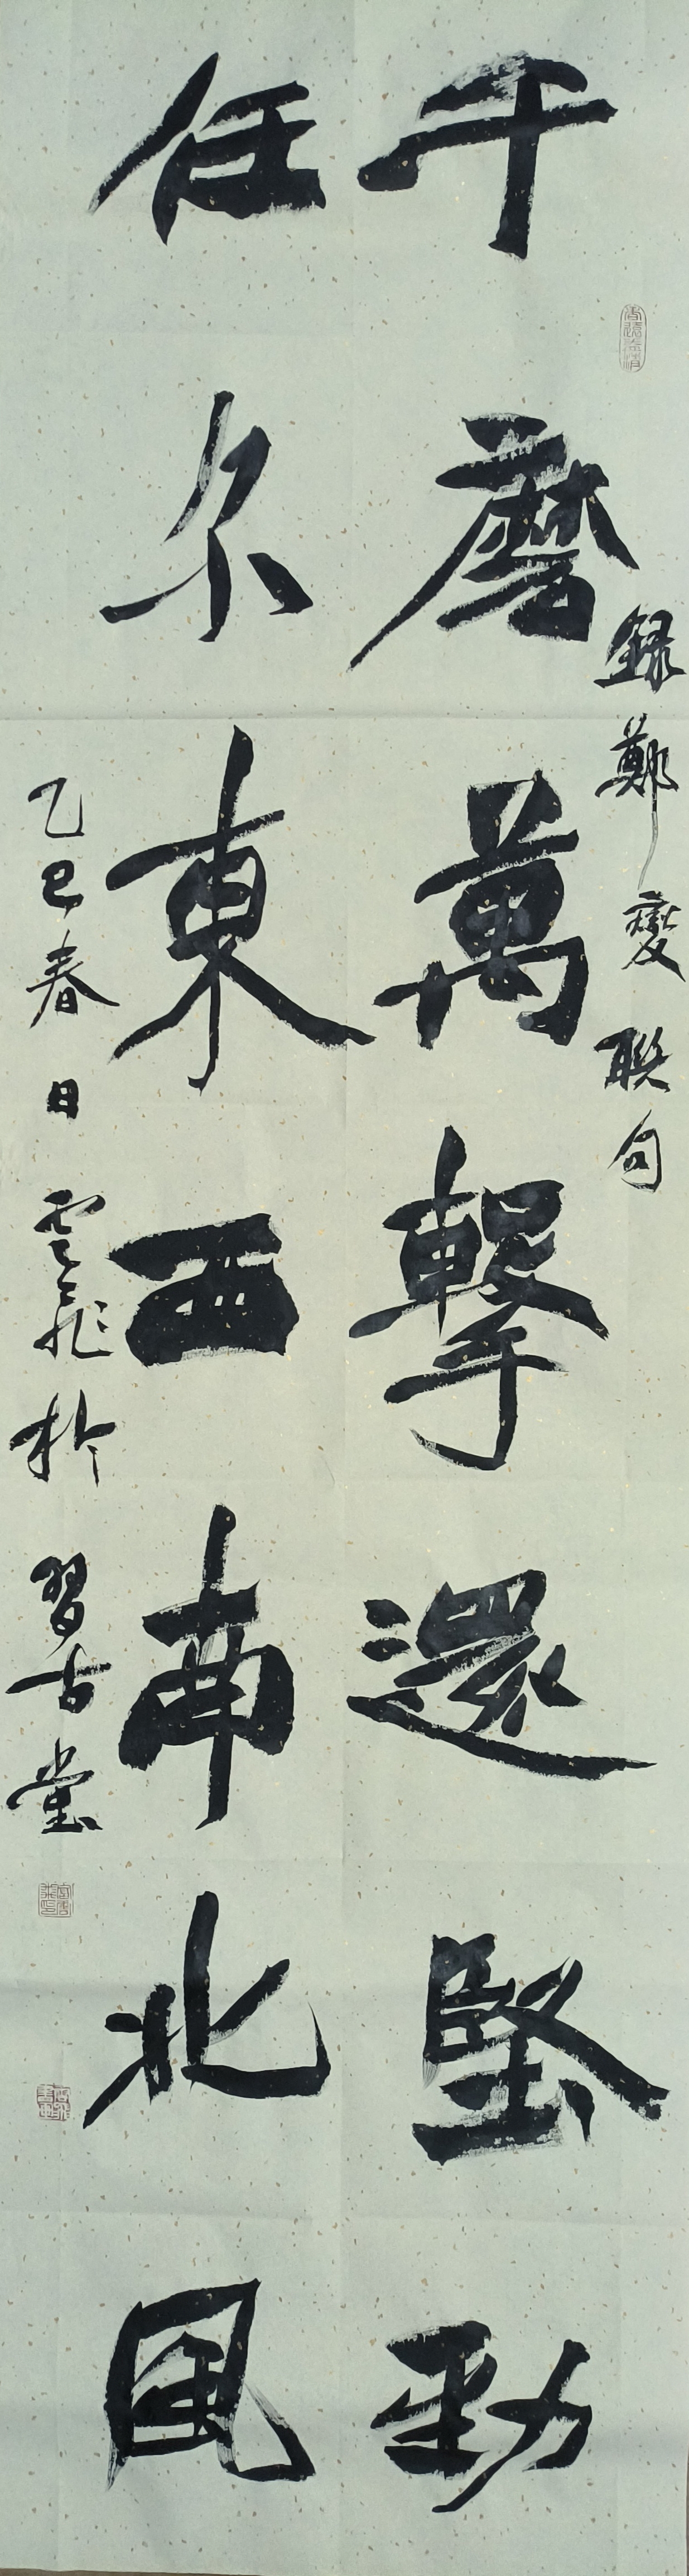 録鄭燮聯句
千磨萬擊還堅勁
任尔東西南北風
乙巳春日雲飛於習古堂